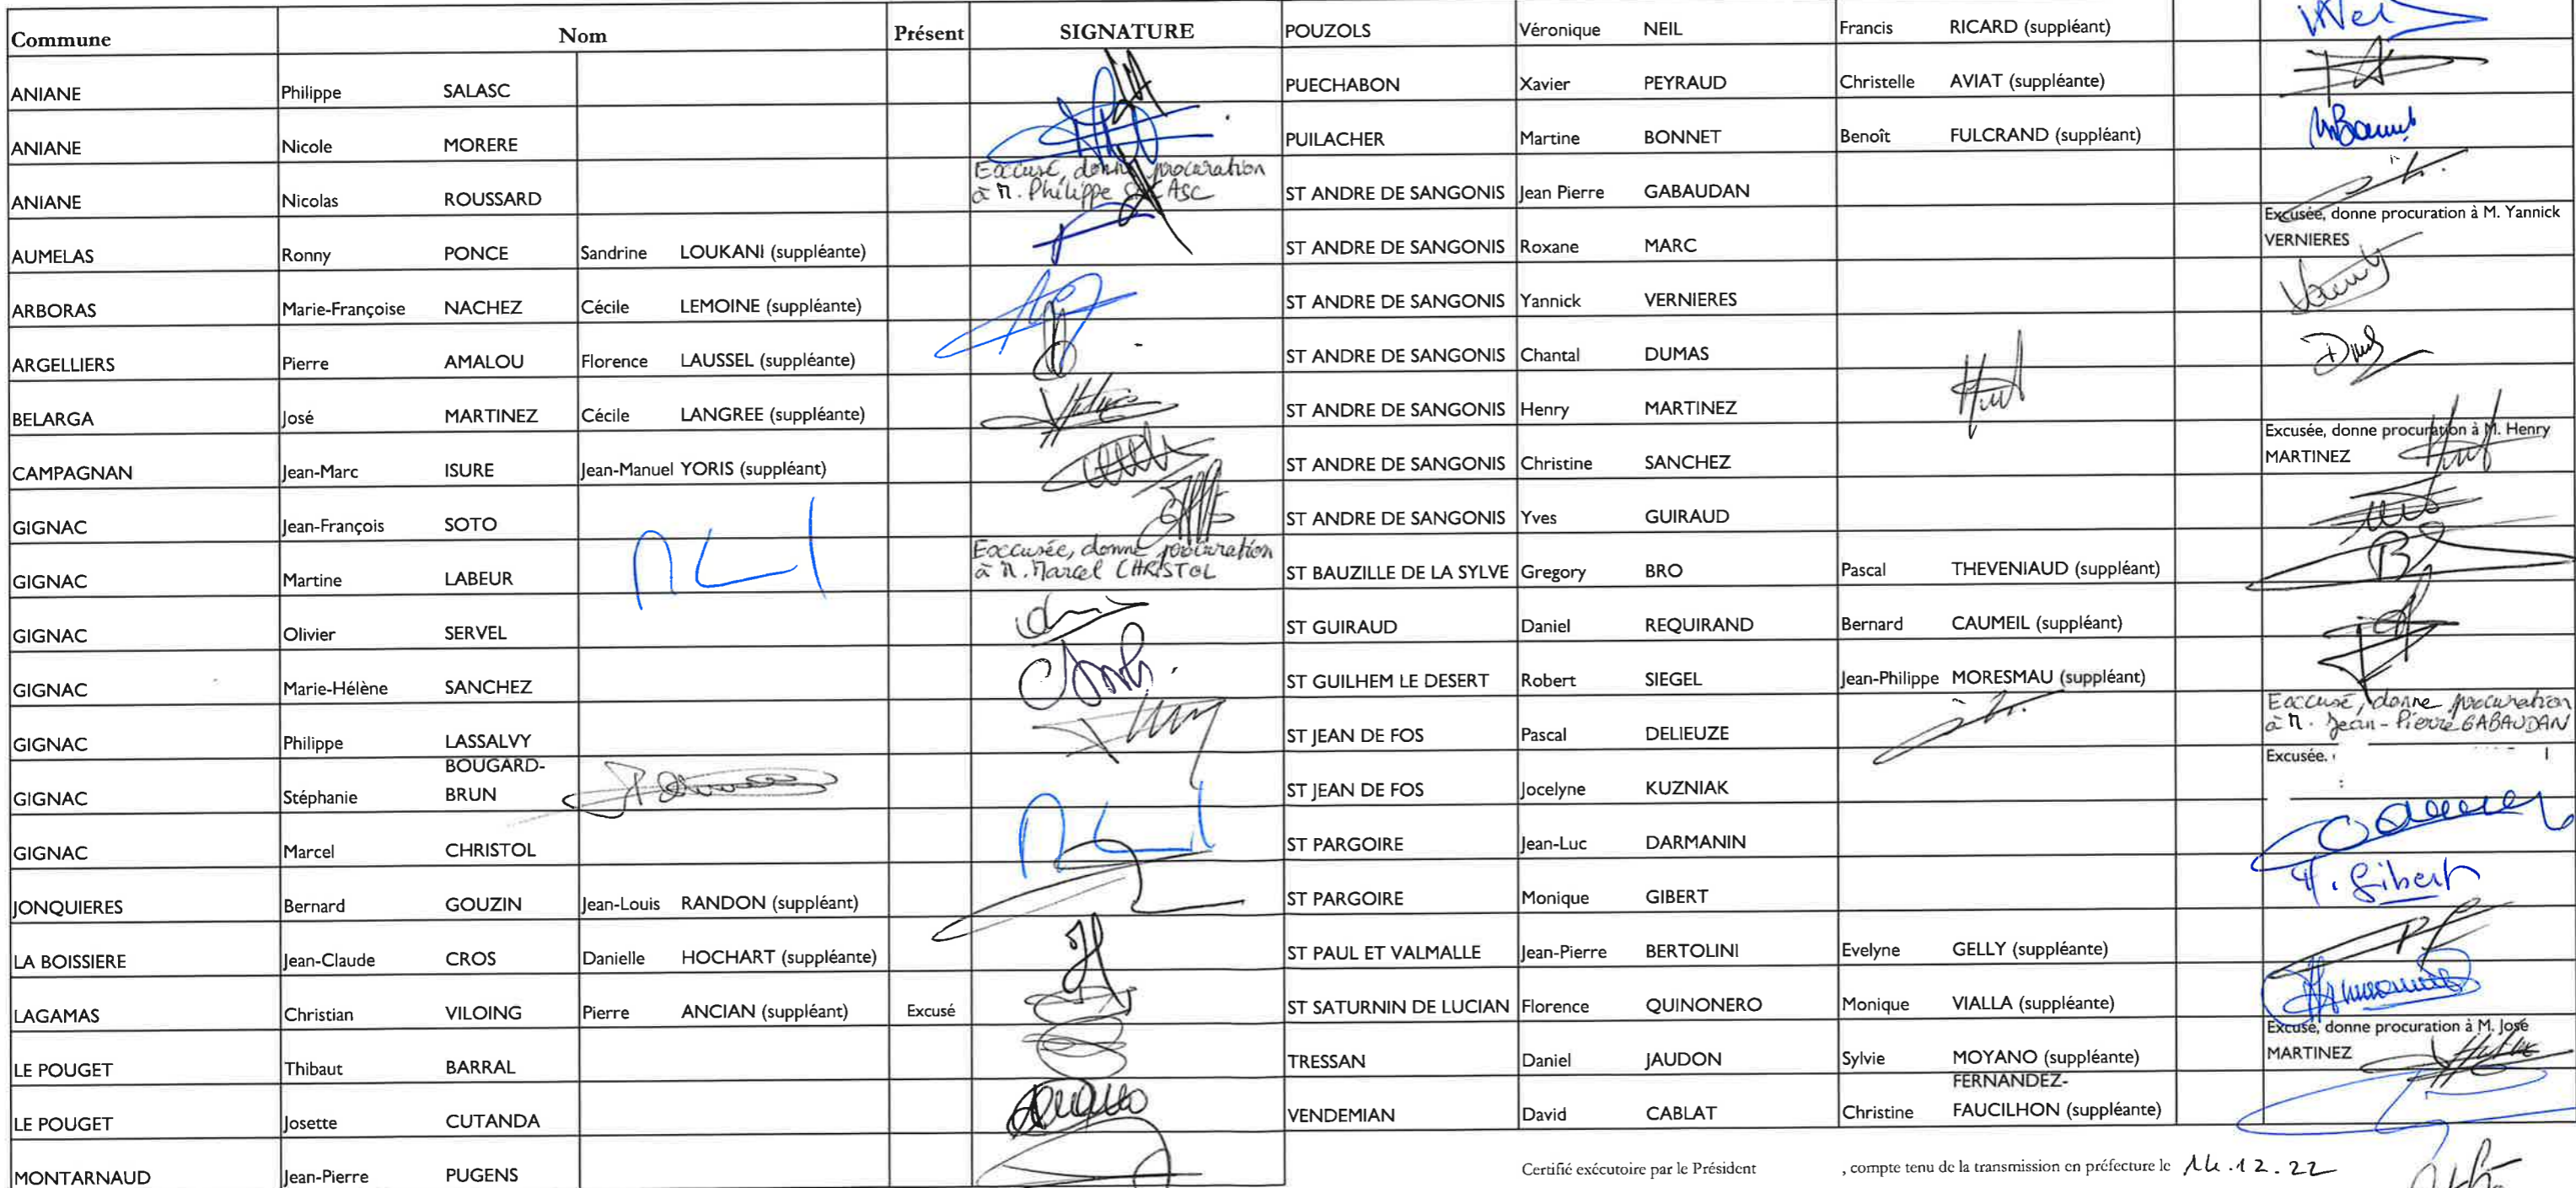 Commune Nom Présent SIGNATURE
ANIANE Philippe SALASC
ANIANE Nicole MORERE
ANIANE Nicolas ROUSSARD Excusé, donne procuration
à M. Philippe SALASC
AUMELAS Ronny PONCE Sandrine LOUKANI (suppléante)
ARBORAS Marie-Françoise NACHEZ Cécile LEMOINE (suppléante)
ARGELLIERS Pierre AMALOU Florence LAUSSEL (suppléante)
BELARGA José MARTINEZ Cécile LANGREE (suppléante)
CAMPAGNAN Jean-Marc ISURE Jean-Manuel YORIS (suppléant)
GIGNAC Jean-François SOTO
GIGNAC Martine LABEUR Excusée, donne procuration
à M. Marcel CHRISTOL
GIGNAC Olivier SERVEL
GIGNAC Marie-Hélène SANCHEZ
GIGNAC Philippe LASSALVY
GIGNAC Stéphanie BOUGARD-
BRUN
GIGNAC Marcel CHRISTOL
JONQUIERES Bernard GOUZIN Jean-Louis RANDON (suppléant)
LA BOISSIERE Jean-Claude CROS Danielle HOCHART (suppléante)
LAGAMAS Christian VILOING Pierre ANCIAN (suppléant) Excusé
LE POUGET Thibaut BARRAL
LE POUGET Josette CUTANDA
MONTARNAUD Jean-Pierre PUGENS
POUZOLS Véronique NEIL Francis RICARD (suppléant)
PUECHABON Xavier PEYRAUD Christelle AVIAT (suppléante)
PUILACHER Martine BONNET Benoît FULCRAND (suppléant)
ST ANDRE DE SANGONIS Jean Pierre GABAUDAN
ST ANDRE DE SANGONIS Roxane MARC Excusée, donne procuration à M. Yannick
VERNIERES
ST ANDRE DE SANGONIS Yannick VERNIERES
ST ANDRE DE SANGONIS Chantal DUMAS
ST ANDRE DE SANGONIS Henry MARTINEZ
ST ANDRE DE SANGONIS Christine SANCHEZ Excusée, donne procuration à M. Henry
MARTINEZ
ST ANDRE DE SANGONIS Yves GUIRAUD
ST BAUZILLE DE LA SYLVE Gregory BRO Pascal THEVENIAUD (suppléant)
ST GUIRAUD Daniel REQUIRAND Bernard CAUMEIL (suppléant)
ST GUILHEM LE DESERT Robert SIEGEL Jean-Philippe MORESMAU (suppléant)
ST JEAN DE FOS Pascal DELIEUZE Excusé, donne procuration
à M. Jean-Pierre GABAUDAN
ST JEAN DE FOS Jocelyne KUZNIAK Excusée.
ST PARGOIRE Jean-Luc DARMANIN
ST PARGOIRE Monique GIBERT M. Gibert
ST PAUL ET VALMALLE Jean-Pierre BERTOLINI Evelyne GELLY (suppléante)
ST SATURNIN DE LUCIAN Florence QUINONERO Monique VIALLA (suppléante)
TRESSAN Daniel JAUDON Sylvie MOYANO (suppléante) Excusé, donne procuration à M. José
MARTINEZ
VENDEMIAN David CABLAT Christine FERNANDEZ-
FAUCILHON (suppléante)
Certifié exécutoire par le Président , compte tenu de la transmission en préfecture le 14.12.22